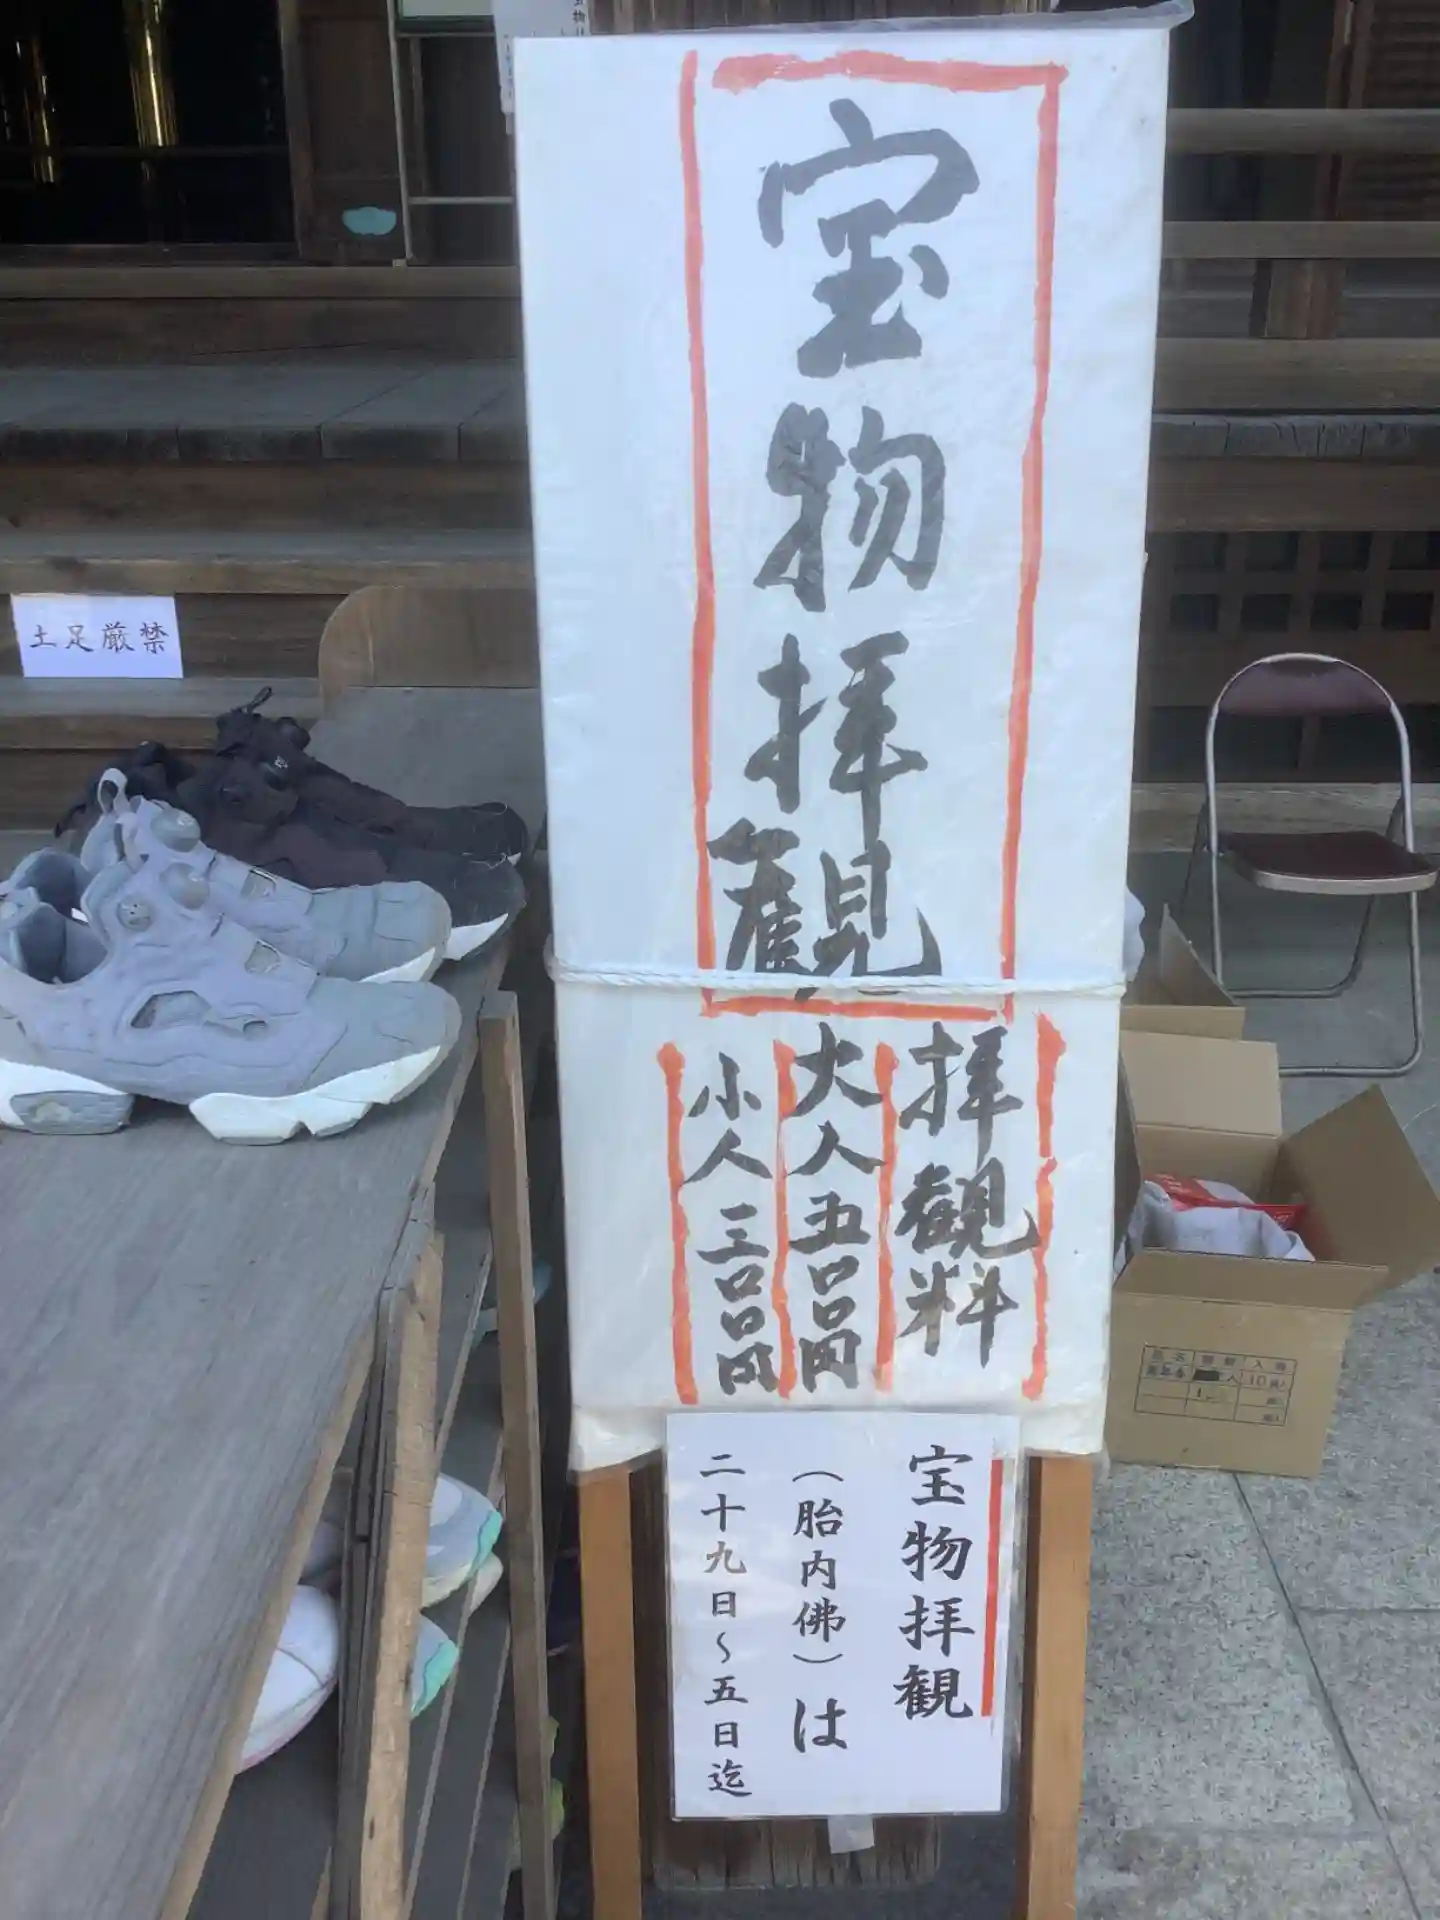 宝物拝観
拝観料
大人五〇〇円
小人三〇〇円
宝物拝観
（胎内佛）は
二十九日～五日迄
土足厳禁